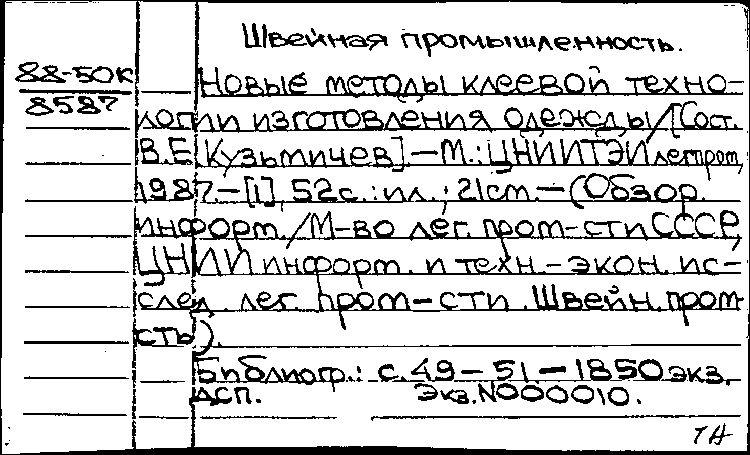 Швейная промышленность.
88-50к
8587
Новые методы клеевой техно-
логии изготовления одежды/[Сост.
В.Е.Кузьмичев].—М.:ЦНИИТЭИлегпром,
1987.—[1], 52с.:ил.; 21см.—(Обзор.
информ./М-во лег. пром-сти СССР,
ЦНИИ информ. и техн.-экон. ис-
след. лег. пром-сти. Швейн. пром-
сть).
Библиогр.: с. 49-51 — 1850 экз.
ДСП. Экз.N000010.